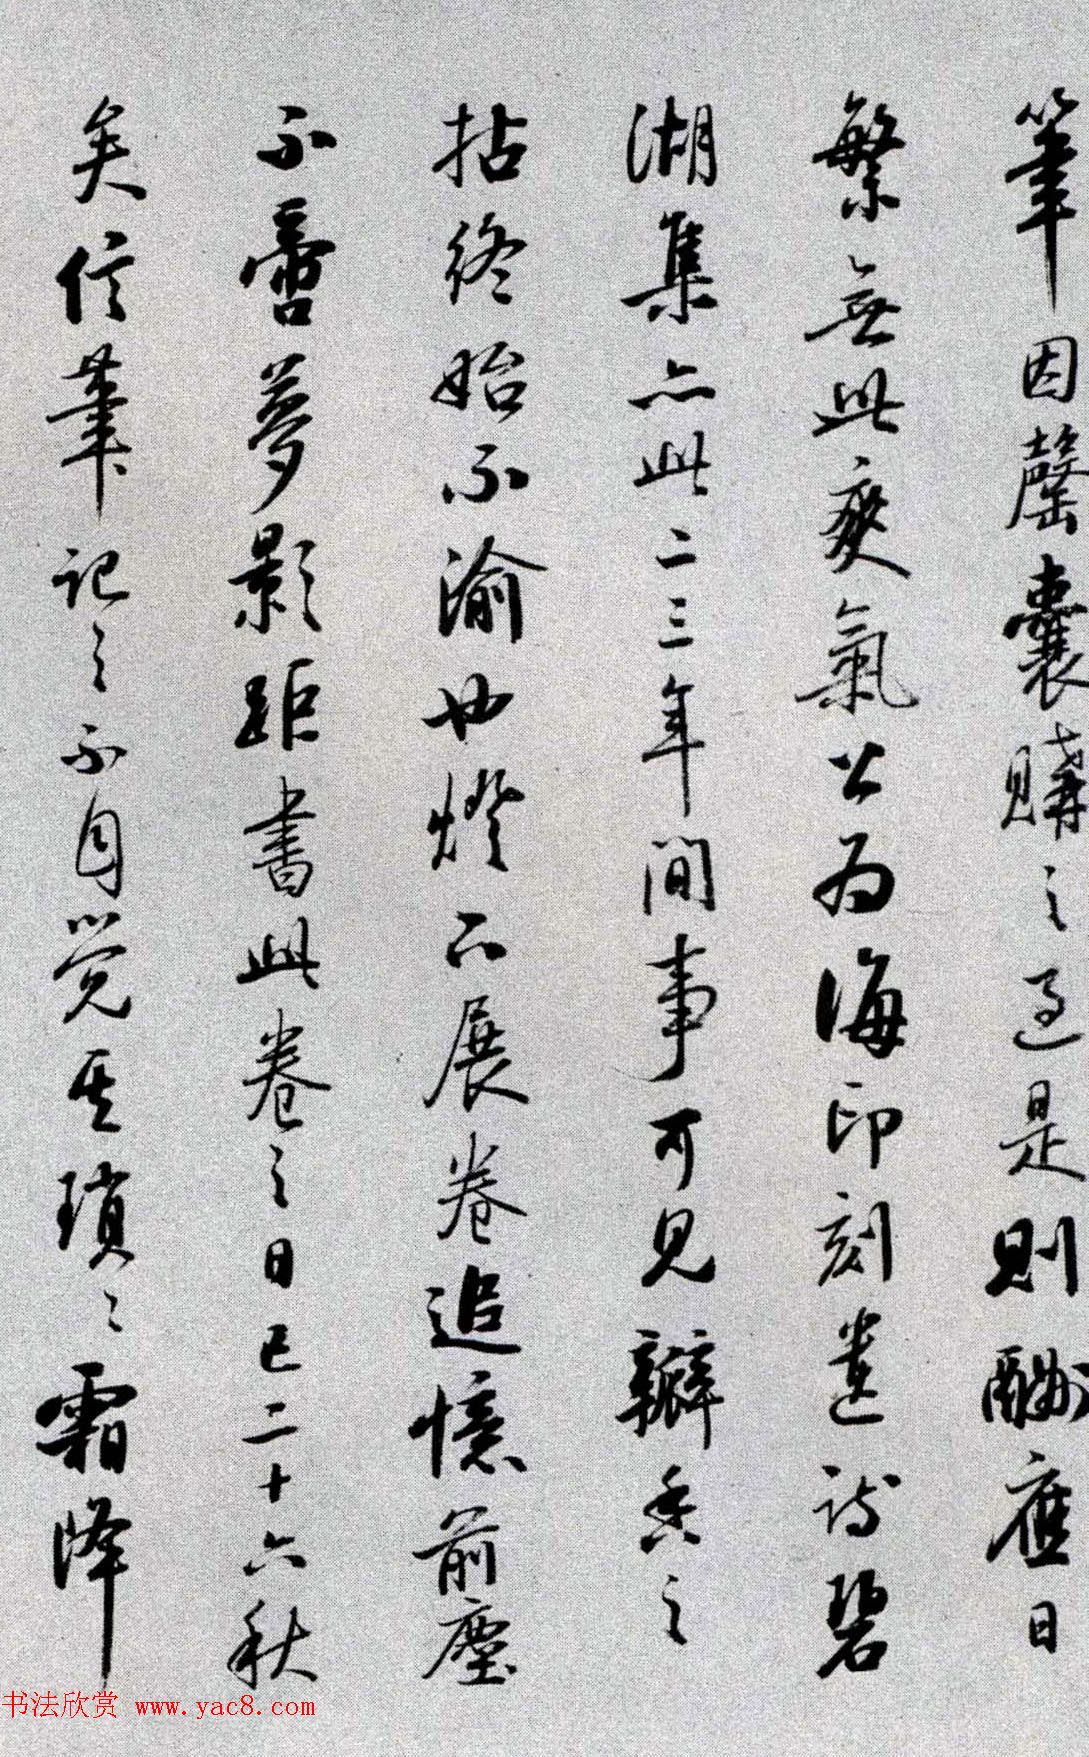 筆因罄囊購之過是則酬應日
繁無此爽氣公為海印刻遺詩碧
湖集亦此二三年間事可見瓣香之
拈終始不渝也燈下展卷追憶前塵
不啻夢影距書此卷之日已二十六秋
矣信筆記之不自覺其瑣〻霜降
书法欣赏 www.yac8.com